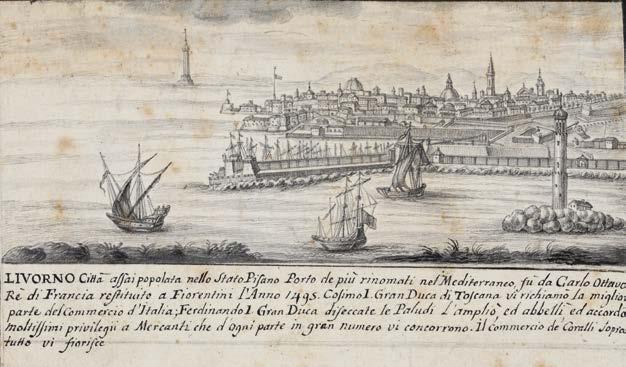 LIVORNO Città assai popolata nello Stato Pisano Porto de più rinomati nel Mediterraneo, fù da Carlo Ottavo
Rè di Francia restituito a Fiorentini l'Anno 1495. Cosimo I. Gran Duca di Toscana vi richiamò la miglior
parte del Commercio d'Italia; Ferdinando I. Gran Duca diseccate le Paludi l'ampliò ed abbellì ed accordò
moltissimi privilegii a Mercanti che d'ogni parte in gran numero vi concorrono. Il Commercio de Coralli Sopra
tutto vi fiorisce